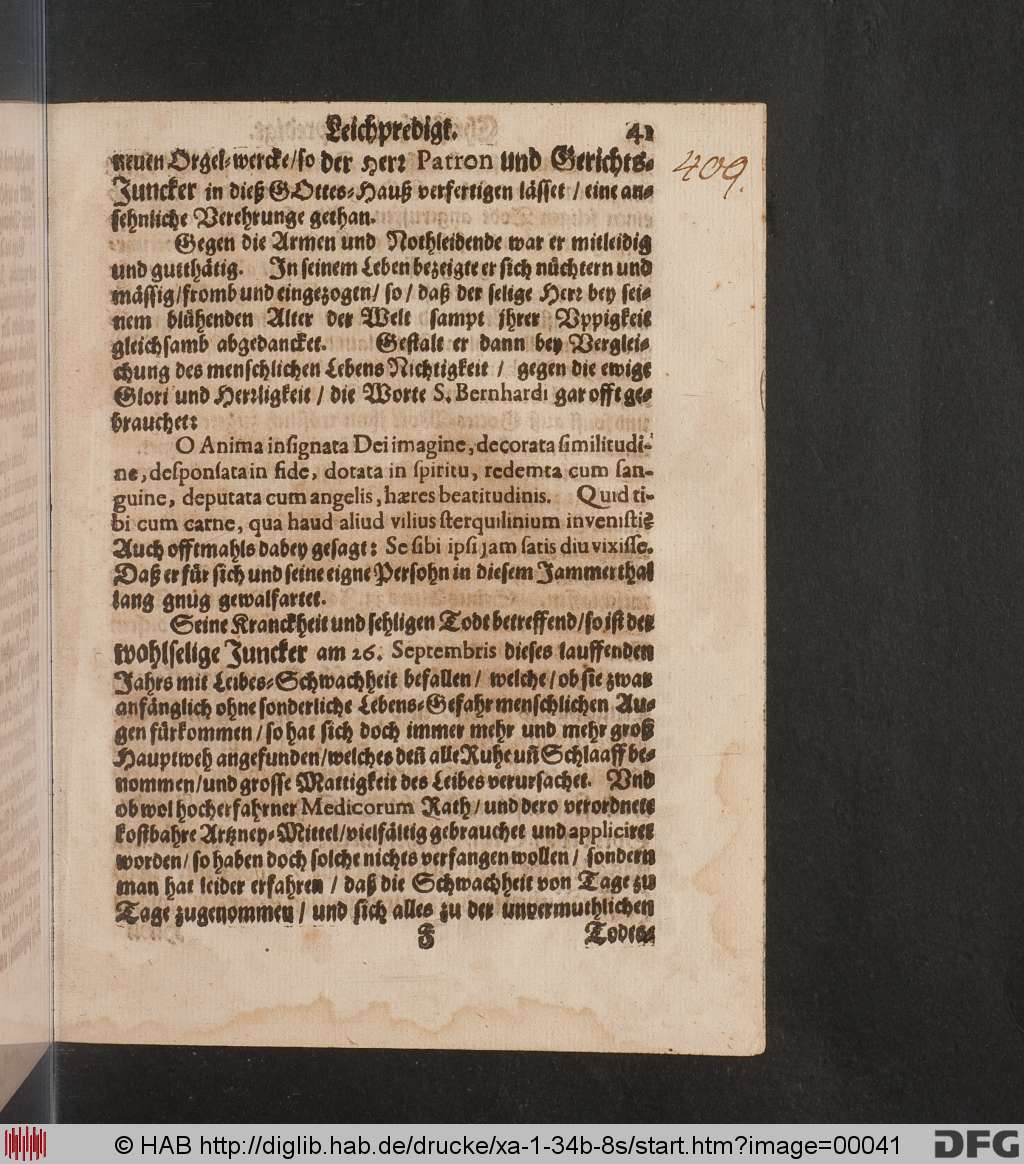 Leichpredigt. 41
409.
neuen Orgel-wercke/so der Herr Patron und Gerichts-
Juncker in dieß GOttes-Hauß verfertigen lässet / eine an-
sehnliche Verehrunge gethan.
Gegen die Armen und Nothleidende war er mitleidig
und gutthätig. In seinem Leben bezeigte er sich nüchtern und
mässig/fromb und eingezogen/ so / daß der selige Herr bey sei-
nem blühenden Alter der Welt sampt jhrer Vppigkeit
gleichsamb abgedancket. Gestalt er dann bey Verglei-
chung des menschlichen Lebens Nichtigkeit / gegen die ewige
Glori und Herrligkeit / die Worte S. Bernhardi gar offt ge-
brauchet:
O Anima insignata Dei imagine, decorata similitudi-
ne, desponsata in fide, dotata in spiritu, redemta cum san-
guine, deputata cum angelis, hæres beatitudinis. Quid ti-
bi cum carne, qua haud aliud vilius sterquilinium invenisti?
Auch offtmahls dabey gesagt: Se sibi ipsi jam satis diu vixisse.
Daß er für sich und seine eigne Persohn in diesem Jammerthal
lang gnug gewalfartet.
Seine Kranckheit und sehligen Todt betreffend/so ist der
wohlselige Juncker am 26. Septembris dieses lauffenden
Jahrs mit Leibes-Schwachheit befallen/ welche/ ob sie zwar
anfänglich ohne sonderliche Lebens-Gefahr menschlichen Au-
gen fürkommen/so hat sich doch immer mehr und mehr groß
Hauptweh angefunden/welches deñ alle Ruhe uñ Schlaaff be-
nommen/und grosse Mattigkeit des Leibes verursachet. Vnd
ob wol hocherfahrner Medicorum Rath/ und dero verordnete
kostbahre Artzney-Mittel/vielfältig gebrauchet und appliciret
worden/ so haben doch solche nichts verfangen wollen/ sondern
man hat leider erfahren / daß die Schwachheit von Tage zu
Tage zugenommen/ und sich alles zu der unvermuthlichen
F Todts-
© HAB http://diglib.hab.de/drucke/xa-1-34b-8s/start.htm?image=00041 DFG